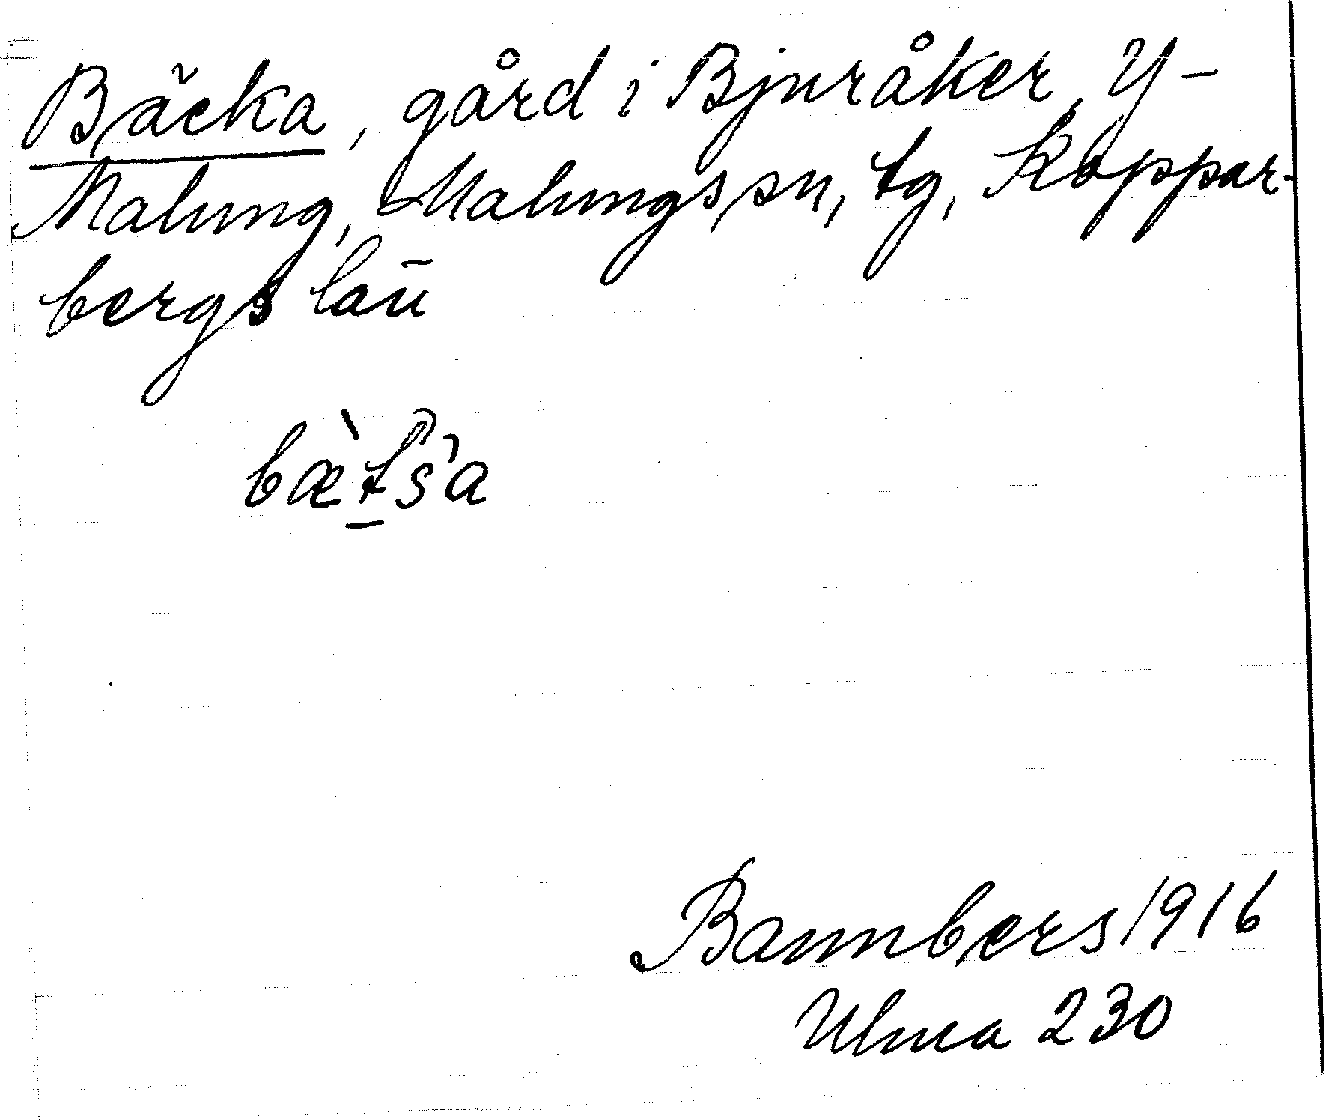 Bäcka, gård i Bjuråker, Y-
Malung, Malungs sn, tg, Koppar-
bergs län
bæ̀tśa
Bannbers 1916
Ulma 230